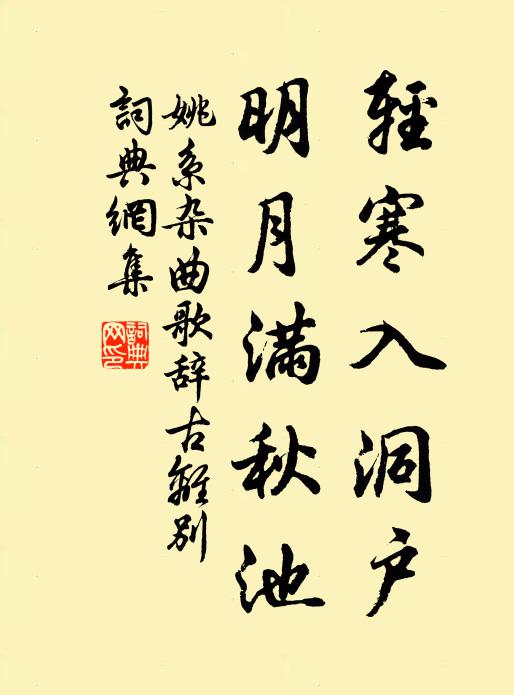 輕寒入洞户
明月滿秋池
姚系杂曲歌辞古離别
詞典網集
詞典網印